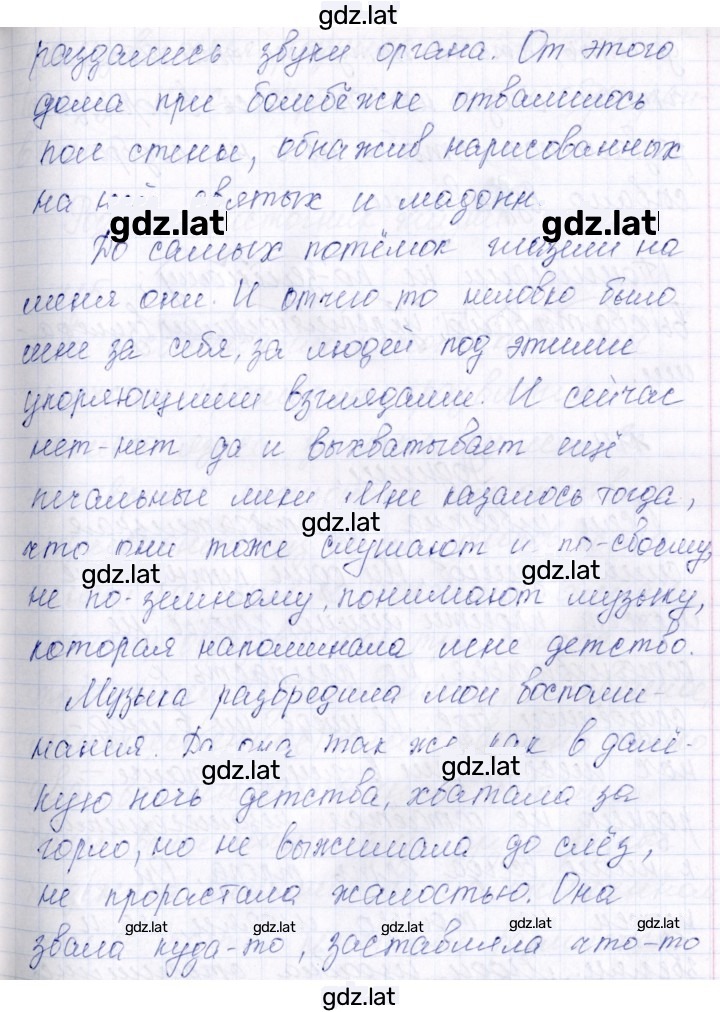 gdz.lat
раздались звуки органа. От этого
дома при бомбёжке отвалилось
пол стены, обнажив нарисованных
на ней святых и мадонн
gdz.lat gdz.lat
До самых потёмок глазели на
меня они. И отчего то неловко было
мне за себя, за людей под этими
укоряющими взглядами. И сейчас
нет-нет да и выхватывает ещё
печальные лики Мне казалось тогда,
gdz.lat
что они тоже слушают и по-своему,
gdz.lat gdz.lat
не по-земному, понимают музыку,
которая напоминала мне детство.
Музыка разбредила мои воспоми-
нания. Да она так же, как в далё-
gdz.lat gdz.lat
кую ночь детства, хватала за
горло, но не выжимала до слёз,
не прорастала жалостью. Она
gdz.lat gdz.lat gdz.lat gdz.lat gdz.lat
звала куда-то, заставляла что-то
gdz.lat